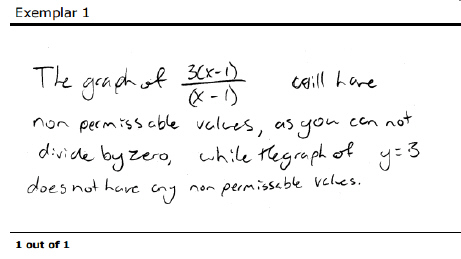 Exemplar 1
The graph of 3(x-1)/(x-1) will have
non permissable values, as you can not
divide by zero, while the graph of y=3
does not have any non permissable values.
1 out of 1